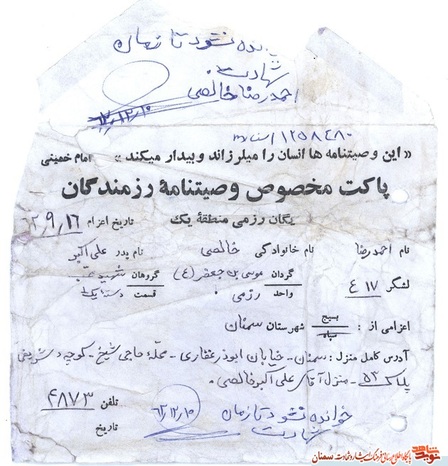 خوانده نشود تا زمان
شهادت
احمدرضا خالصی
۶۲،۱۲،۱۰
۱۲۵۸۴۸۰
«این وصیتنامه ها انسان را میلرزاند و بیدار میکند» امام خمینی
پاکت مخصوص وصیتنامهٔ رزمندگان
یگان رزمی منطقهٔ یک
تاریخ اعزام ۶۲،۹،۱۶
نام احمدرضا نام خانوادگی خالصی نام پدر علی اکبر
لشگر ۱۷ گردان موسی بن جعفر (۴) گروهان شهید
واحد رزمی قسمت دسته یک
اعزامی از: بسیج سپاه شهرستان سمنان
آدرس کامل منزل: سمنان - خیابان ابوذر غفاری - محلّه حاجی شیخ - کوچه
پلاک ۵۲ - منزل آقای علی اکبر خالصی.
تلفن ۴۸۷۳
خوانده نشود تا زمان
شهادت
۶۲،۱۲،۱۰
تاریخ
نوید شاهد
پایگاه اطلاع رسانی فرهنگ ایثار و شهادت سمنان